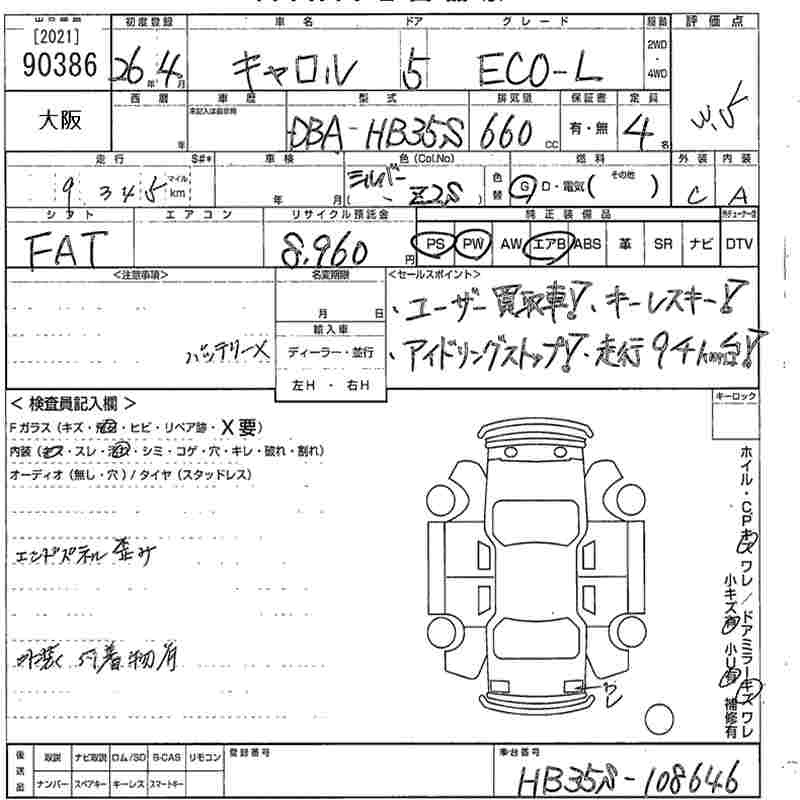 [2021] 初度登録 車名 ドア グレード 服歴 評価点
90386 26年4月 キャロル 5 ECO-L 2WD・4WD
西暦 車歴 型式 排気量 保証書 定員 3.5
大阪 年 DBA-HB35S 660cc 有・無 4名
走行 S#* 車検 色(Col.No) 燃料 外装 内装
9,345 マイル km 年 月 シルバー Z2S 色替 G D・電気( その他 ) C A
シフト エアコン リサイクル預託金 純正装備品
FAT 8,960円 PS PW AW エアB ABS 革 SR ナビ DTV
<注意事項> 名変期限 <セールスポイント>
月 日 、ユーザー買取車!、キーレスキー!
輸入車
バッテリーX ディーラー・並行 、アイドリングストップ!・走行94km台!
左H・右H
< 検査員記入欄 > キーロック
Fガラス(キズ・飛石・ヒビ・リペア跡・X要)
内装(キズ・スレ・汚れ・シミ・コゲ・穴・キレ・破れ・割れ)
オーディオ(無し・穴)/タイヤ(スタッドレス)
ホイル・CPキズ ワレ/ドアミラーキズ ワレ
小キズ有 小U有 補修有
エンドパネル 歪み
外装 付着物有
ワレ
後送品 取説 ナビ取説 ロム/SD B-CAS リモコン 登録番号 車台番号
ナンバー スペアキー キーレス スマートキー HB35S-108646